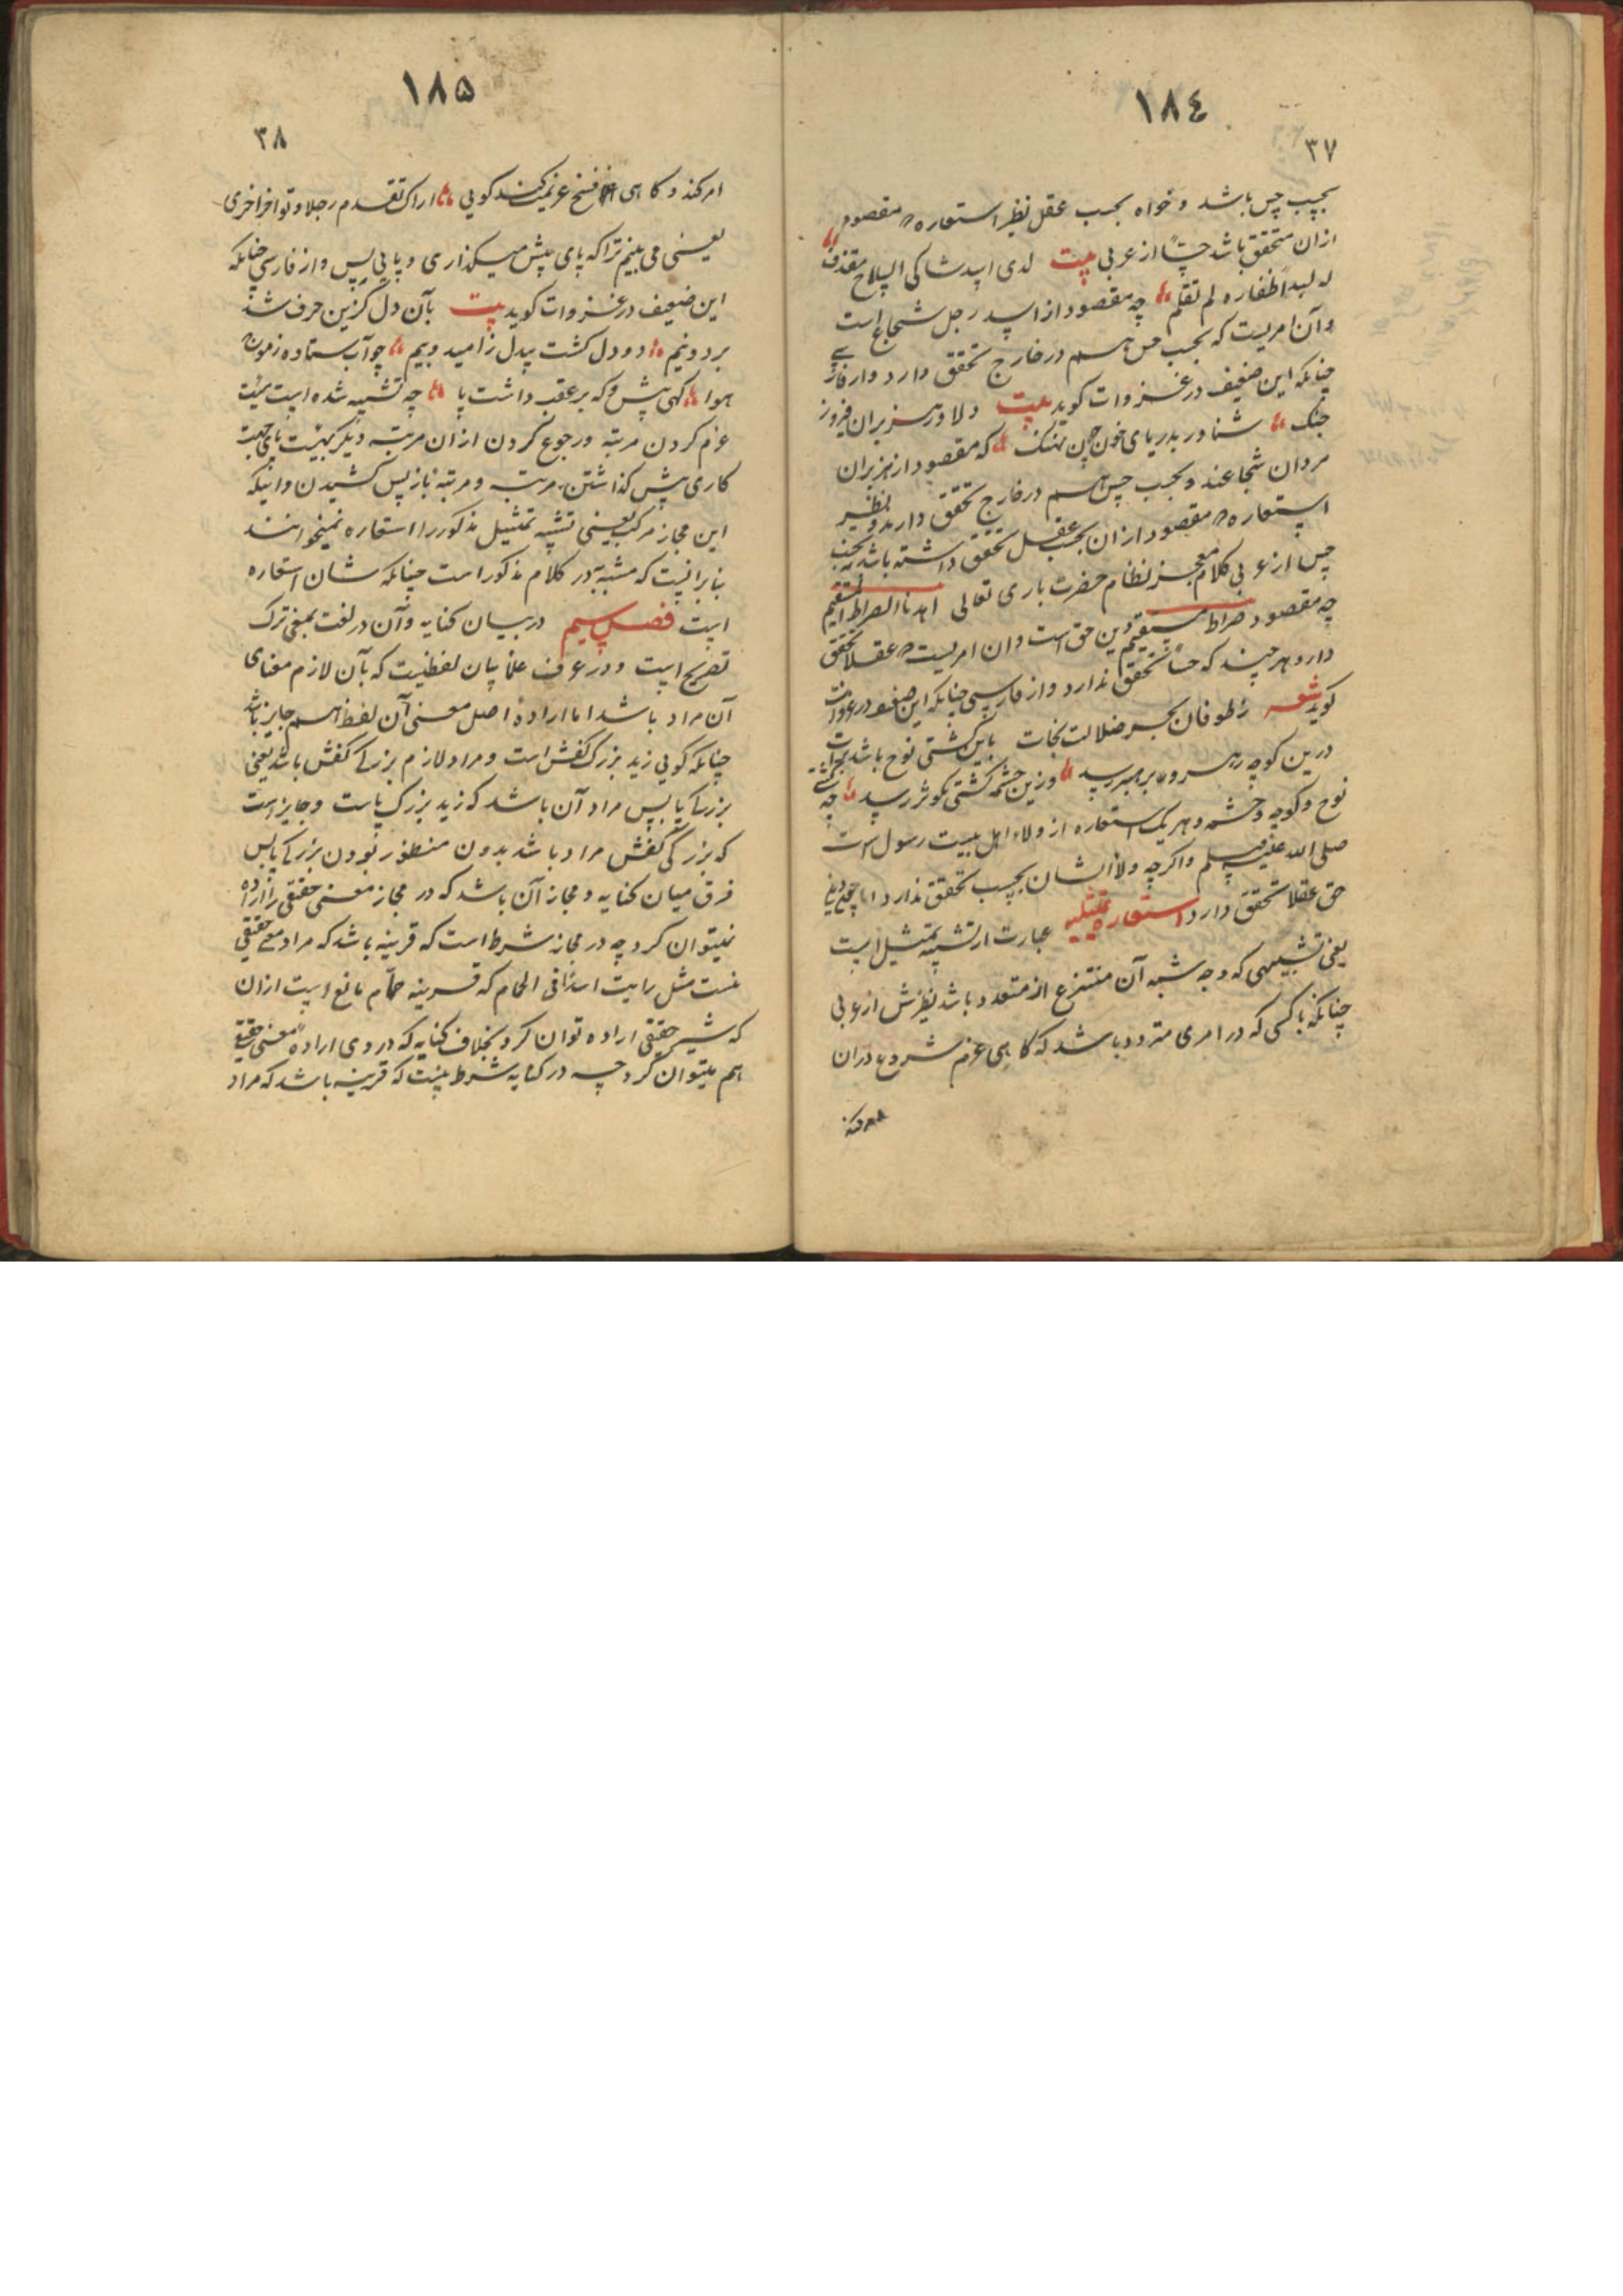 ١٨٤
٣٧
بحسب حس باشد و خواه بحسب عقل نظیر استعاره که مقصود
ازان متحقق باشد حسّاً از عربی بیت لدی اسد شاکی السلاح مقذف
له لبد اظفاره لم تقلم چه مقصود از اسد رجل شجاع است
و آن امریست که بحسب حس هم در خارج تحقق دارد و از فارسی
چنانکه این ضعیف در غزوات کوید بیت دلاور هزبران فیروز
جنک شناور بدریای خون چون نهنک که مقصود از هزبران
مردان شجاعند و بحسب حس هم در خارج تحقق دارند و نظیر
استعاره که مقصود ازان بحسب عقل تحقق داشته باشد نه بحسب
حس از عربی کلام معجز نظام حضرت باری تعالی اهدنا الصراط المستقیم
چه مقصود صراط مستقیم دین حق است و ان امریست که عقلا تحقق
دارد هر چند که حسّاً تحقق ندارد و از فارسی چنانکه این ضعیف در غزوات
کوید شعر ز طوفان بحر ضلالت نجات باین کشتی نوح باشد
درین کوچه رهرو بر هبر رسید وزین چشمه کشتی بکوثر رسید چه کشتی
نوح و کوچه و چشمه و هر یک استعاره از ولاء اهل بیت رسول است
صلی الله علیه و سلم و اکرچه ولاء ایشان بحسب تحقق ندارد اما
حق عقلا تحقق دارد استعاره تمثیلیه عبارت از تشبیه تمثیل است
یعنی تشبیهی که وجه شبه آن منتزع از متعدد باشد نظیرش از عربی
چنانکه با کسی که در امری متردد باشد که کاهی عزم شروع دران
امر کند
١٨٥
٣٨
امر کند و کاهی فسخ عزیمت کند کویی اراک تقدم رجلا و تؤاخر اخری
یعنی می بینم ترا که پای پیش میکذاری و پایی پس و از فارسی چنانکه
این ضعیف در غزوات کوید بیت بآن دل کزین حرف شد
برد و نیم دو دل کشت بیدل ز امید و بیم چو آب ستاده ز موج
هوا کهی پیش و که بر عقب داشت پا چه تشبیه شده است هیئت
عزم کردن مرتبه و رجوع کردن ازان مرتبه دیکر بهیئت پای بجهت
کاری پیش کذاشتن مرتبه و مرتبه باز پس کشیدن و اینکه
این مجاز مرکب یعنی تشبیه تمثیل مذکور را استعاره نمیخوانند
بنا بر انیست که مشبه به در کلام مذکور است چنانکه شان استعاره
است فصل سیم در بیان کنایه و آن در لغت بمعنی ترک
تصریح است و در عرف علماء بیان لفظیست که بآن لازم معنای
آن مراد باشد اما اراده اصل معنی آن لفظ هم جایز باشد
چنانکه کویی زید بزرک کفش است و مراد لازم بزرکی کفش باشد یعنی
بزرکی پا پس مراد آن باشد که زید بزرک پاست و جایز است
که بزرکی کفش مراد باشد بدون منظور نبودن بزرکی پا پس
فرق میان کنایه و مجاز آن باشد که در مجاز معنی حقیقی را اراده
نمیتوان کرد چه در مجاز شرط است که قرینه باشد که مراد معنی حقیقی
نیست مثل رایت اسدا فی الحمام که قرینه حمّام مانع است ازان
که شیر حقیقی اراده توان کرد بخلاف کنایه که در وی اراده معنی حقیقی
هم میتوان کرد چه در کنایه شرط نیست که قرینه باشد که مراد